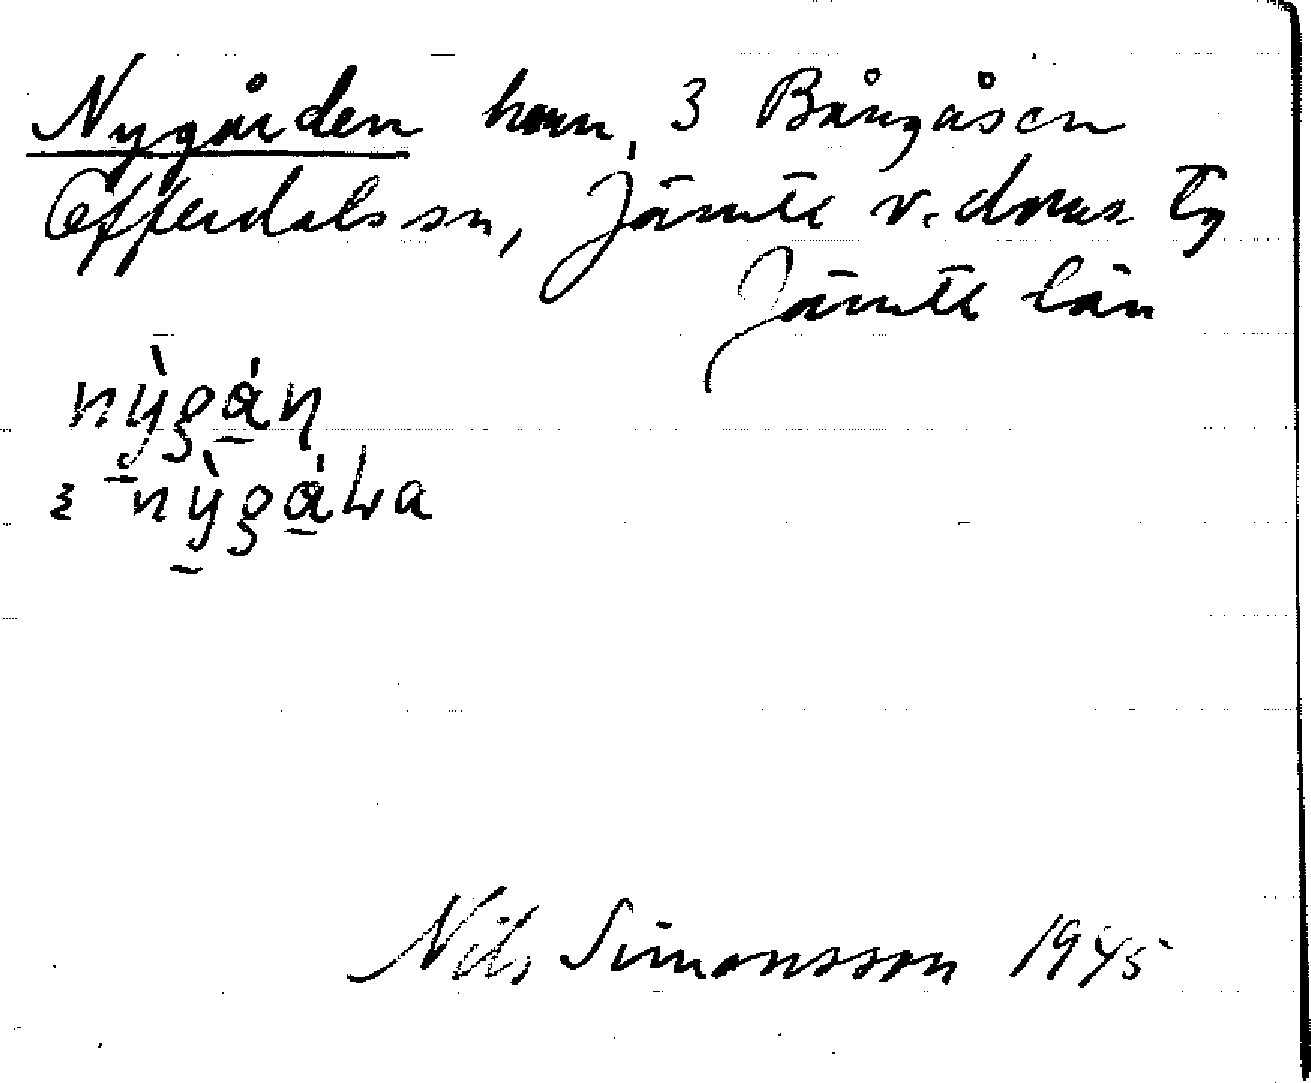 Nygården hmn, 3 Bångåsen
Offerdals sn, Jämtl v. doms tg
Jämtl län
nỳgán
nỳgáɬa
Nils Simonsson 1945